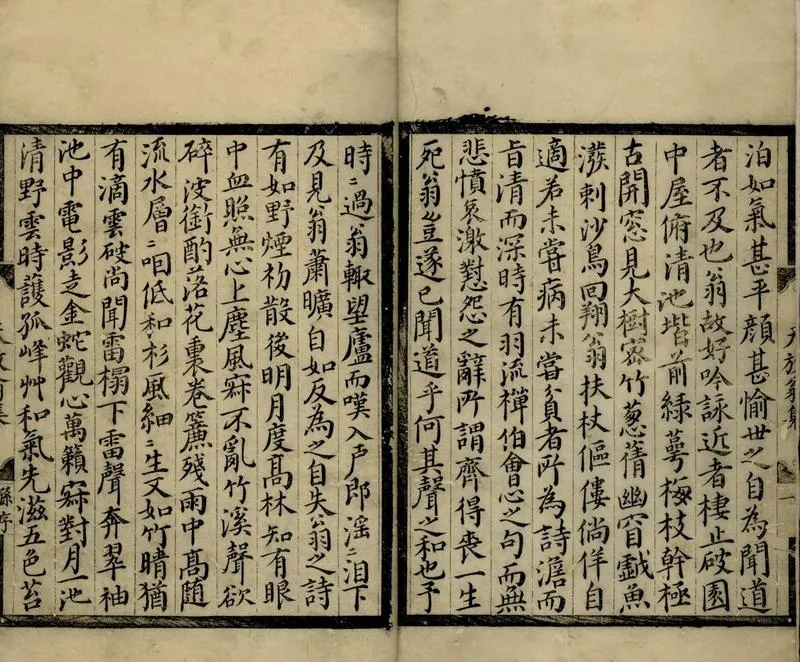 泊如氣甚平顔甚愉世之自為聞道
者不及也翁故好吟詠近者棲止破園
中屋俯清池堦前綠萼梅枝幹極
古開窓見大樹宻竹葱蒨幽窅戲魚
潑剌沙鳥回翔翁扶杖傴僂倘佯自
適若未嘗病未嘗貧者所為詩澹而
旨清而深時有羽流禪伯會心之句而無
悲憤哀激懟怨之辭所謂齊得喪一生
死翁豈遂已聞道乎何其聲之和也予
時〻過翁輙望廬而嘆入戸郎滛〻泪下
及見翁蕭曠自如反為之自失翁之詩
有如野煙初散後明月度髙林知有眼
中血照無心上塵風寂不亂竹溪聲欲
碎波銜酌落花裏卷簾殘雨中髙随
流水層〻咽低和杉風細〻生又如竹晴猶
有滴雲破尚聞雷榻下雷聲奔翠袖
池中電影走金蛇觀心萬籟寂對月一池
清野雲時護孤峰艸和氣先滋五色苔